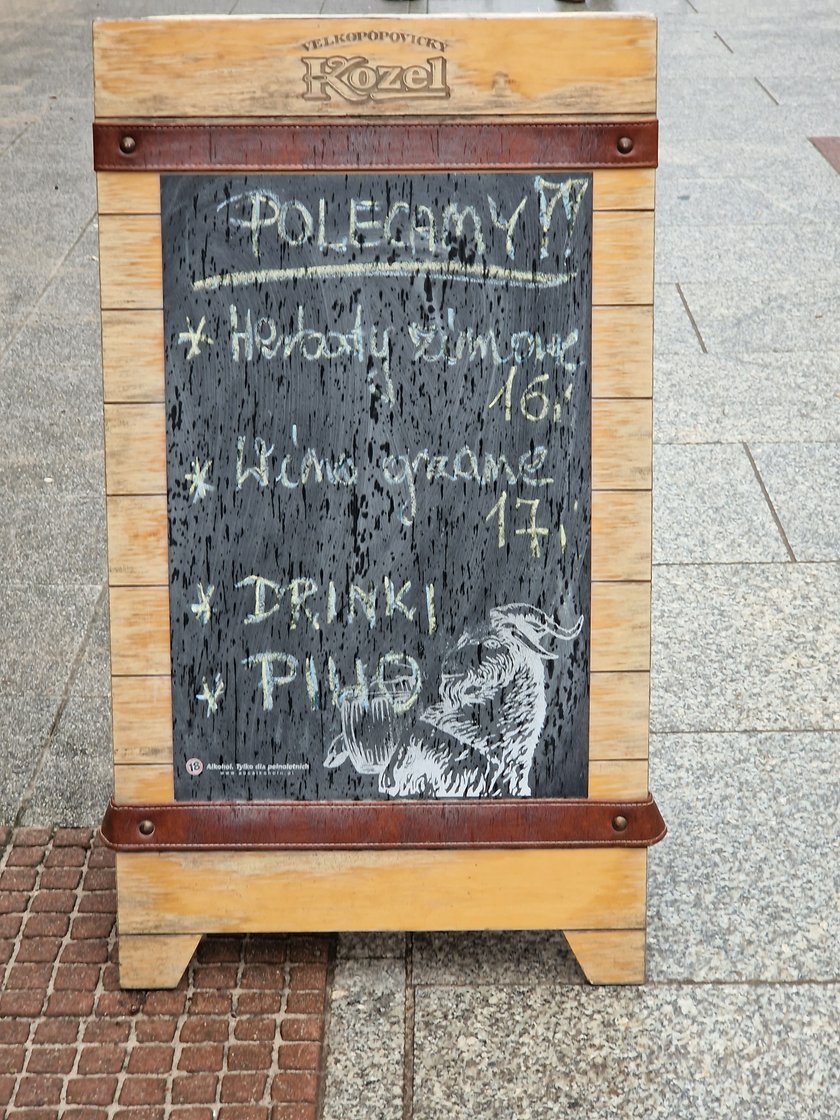 VELKOPOPOVICKÝ
Kozel
POLECAMY!!
* Herbaty zimowe
16,-
* Wino grzane
17,-
* DRINKI
* PIWO
18 Alkohol. Tylko dla pełnoletnich
www.abcalkoholu.pl